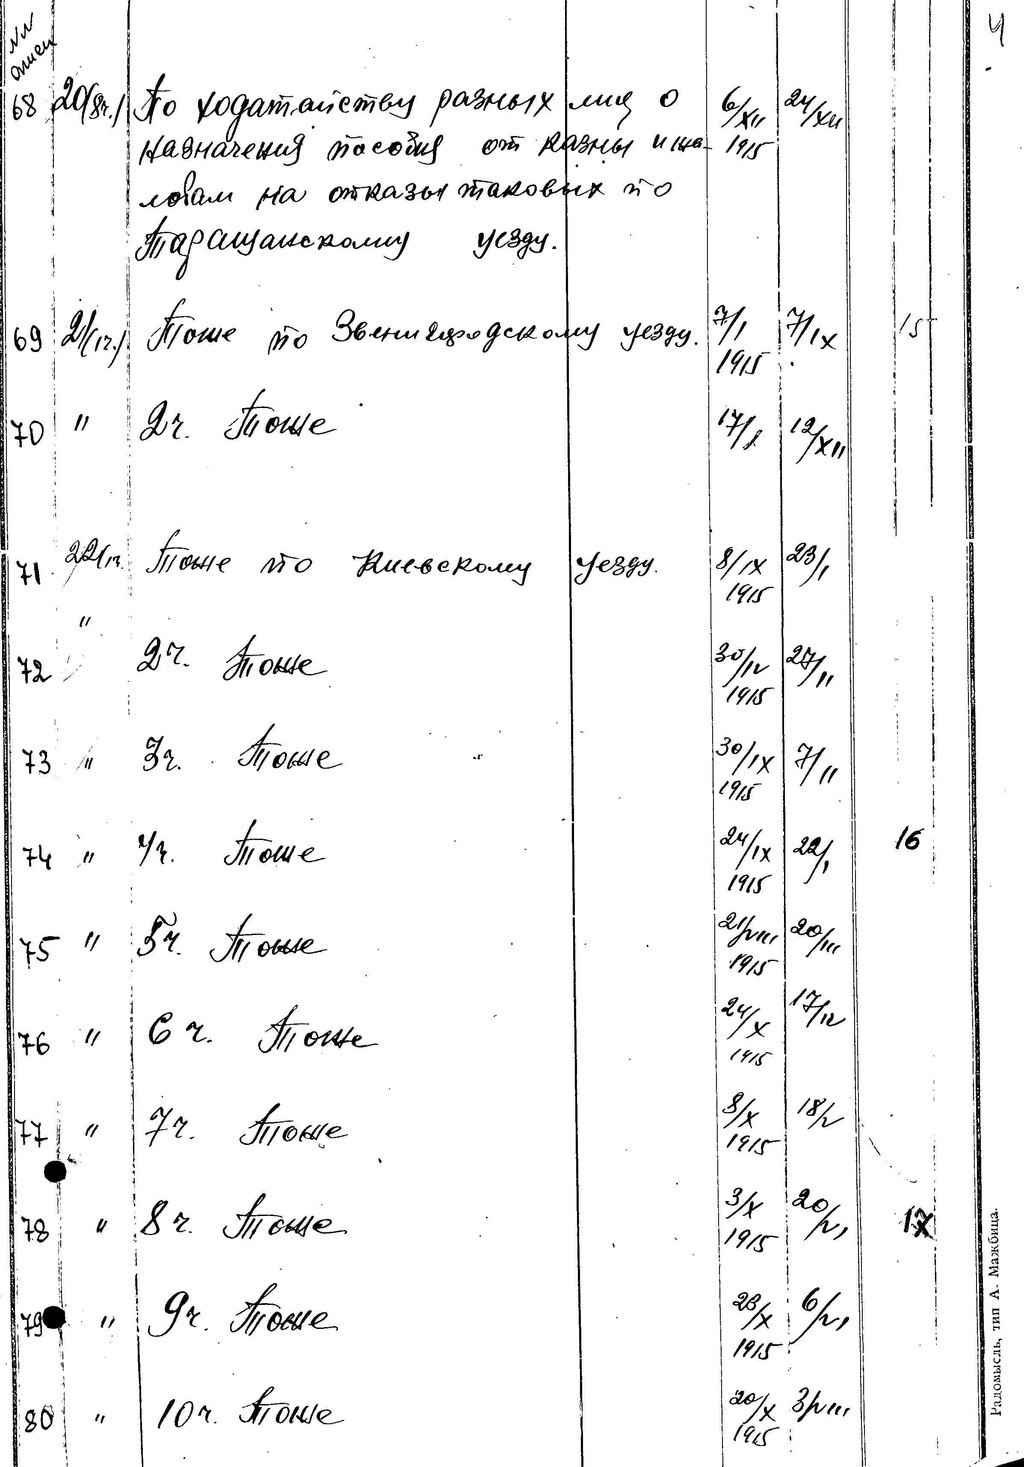 4
№№
описи
68 20(8ч.) По ходатайству разных лиц о 6/XII 24/XII
назначения пособия от казны и жа- 1915
лобам на отказы таковых по
Таращанскому уезду.
69 21(1ч.) Тоже по Звенигородскому уезду. 7/I 7/IX 15
1915
70 " 2ч. Тоже 17/I 12/XII
71 22(1ч. Тоже по Киевскому уезду. 8/IX 23/I
1915
72 " 2ч. Тоже 30/IV 27/II
1915
73 " 3ч. Тоже 30/IX 7/II
1915
74 " 4ч. Тоже 24/IX 22/I 16
1915
75 " 5ч. Тоже 21/VIII 20/III
1915
76 " 6ч. Тоже 24/X 17/IV
1915
77 " 7ч. Тоже 8/X 18/V
1915
78 " 8ч. Тоже 3/X 20/VI 17
1915
79 " 9ч. Тоже 23/X 6/VI
1915
80 " 10ч. Тоже 20/X 3/VIII
1915
Радомысль, тип А. Мажбица.